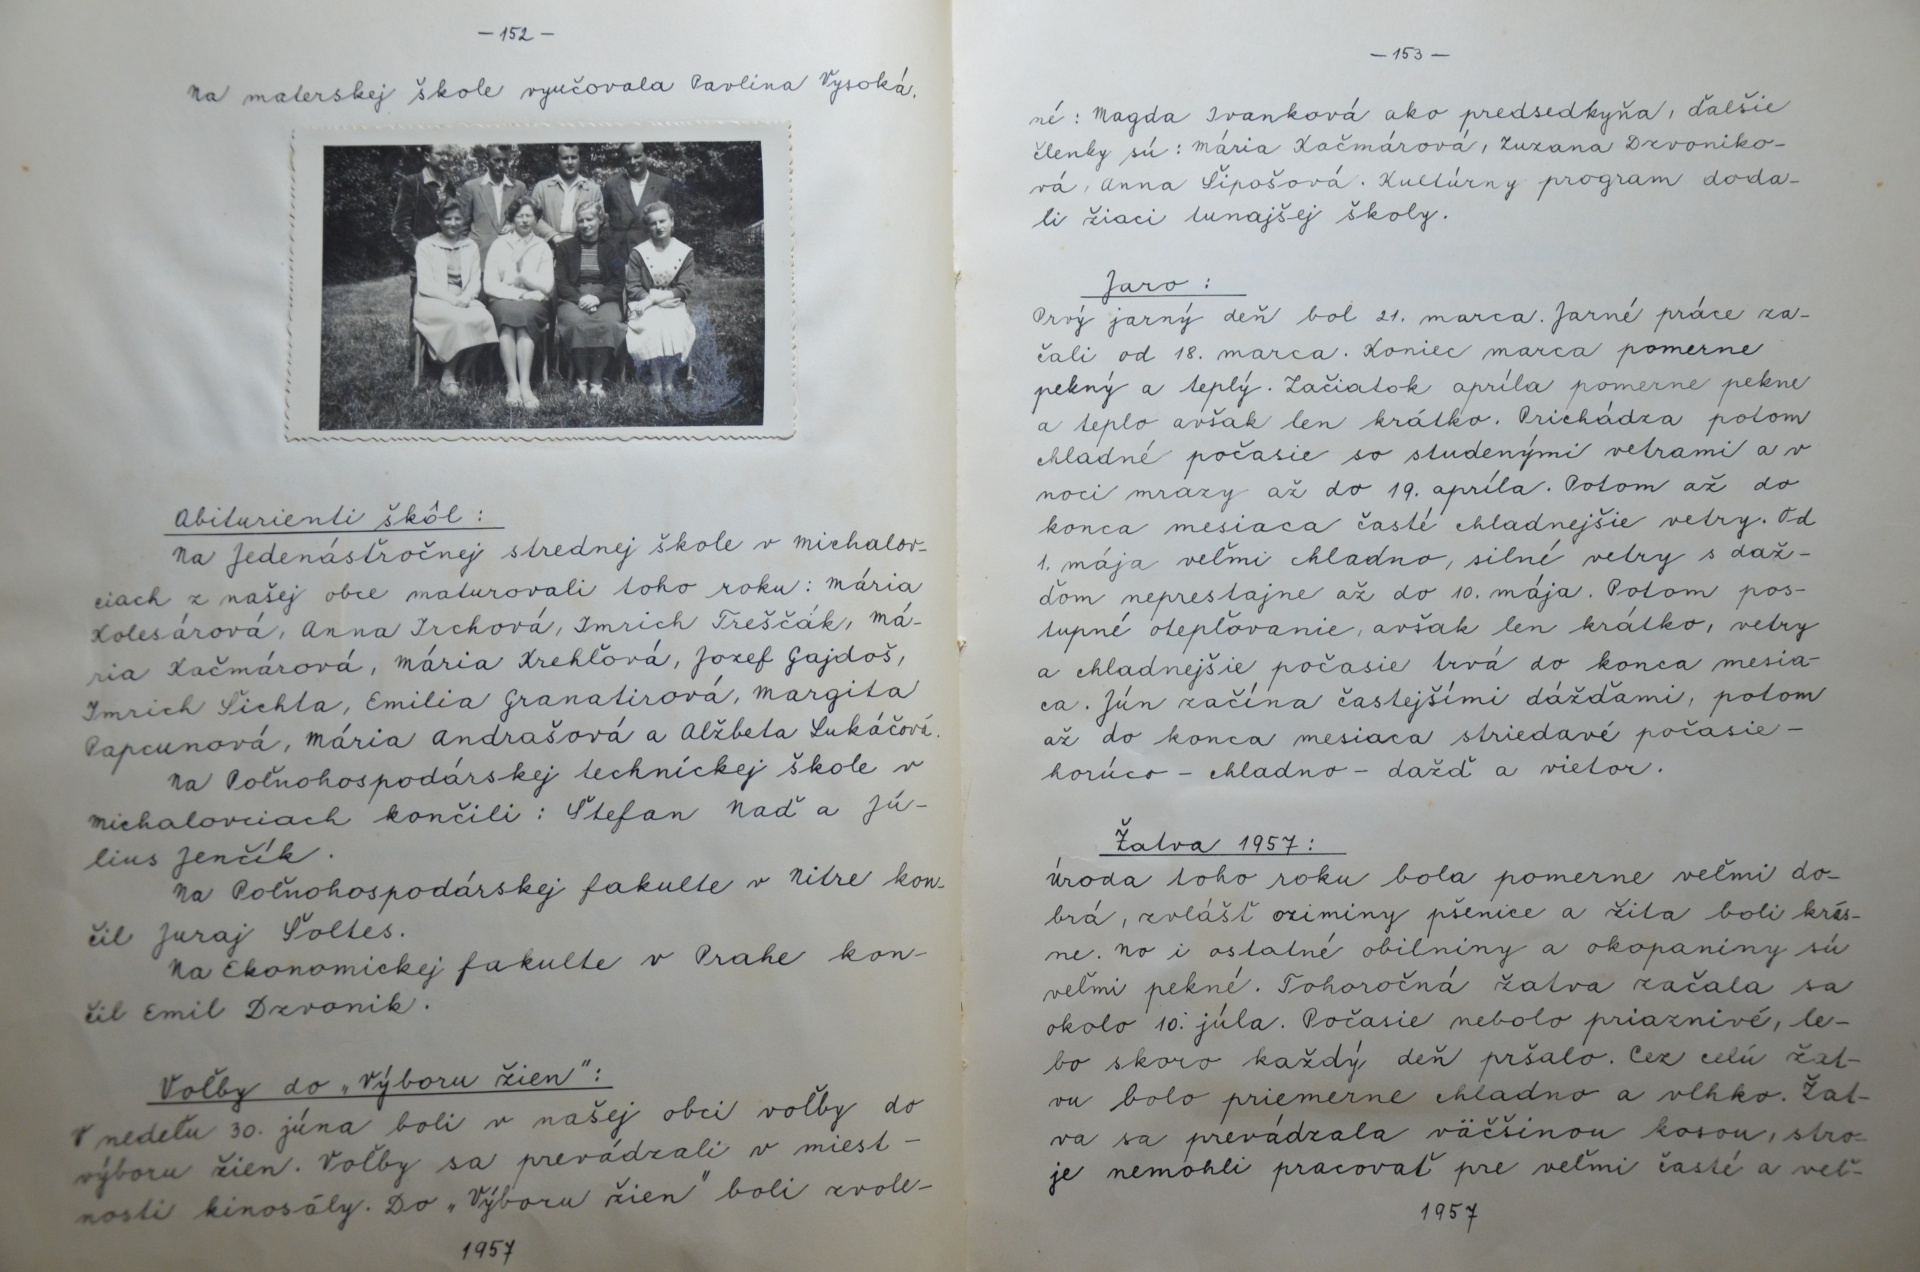 — 152 —
Na materskej škole vyučovala Pavlína Vysoká.
Abiturienti škôl:
Na Jedenásťročnej strednej škole v Michalov-
ciach z našej obce maturovali toho roku: Mária
Kolesárová, Anna Irchová, Imrich Treščák, Má-
ria Kačmárová, Mária Krehľová, Jozef Gajdoš,
Imrich Šichta, Emilia Granatirová, Margita
Papcunová, Mária Andrašová a Alžbeta Lukáčová.
Na Poľnohospodárskej technickej škole v
Michalovciach končili: Štefan Naď a Jú-
lius Jenčík.
Na Poľnohospodárskej fakulte v Nitre kon-
čil Juraj Šoltes.
Na Ekonomickej fakulte v Prahe kon-
čil Emil Dzvonik.
Voľby do „Výboru žien":
V nedeľu 30. júna boli v našej obci voľby do
výboru žien. Voľby sa prevádzali v miest-
nosti kinosály. Do „Výboru žien" boli zvole-
1957
— 153 —
né: Magda Ivanková ako predsedkyňa, ďalšie
členky sú: Mária Kačmárová, Zuzana Dzvoniko-
vá, Anna Šipošová. Kultúrny program doda-
li žiaci tunajšej školy.
Jaro:
Prvý jarný deň bol 21. marca. Jarné práce za-
čali od 18. marca. Koniec marca pomerne
pekný a teplý. Začiatok apríla pomerne pekne
a teplo avšak len krátko. Prichádza potom
chladné počasie so studenými vetrami a v
noci mrazy až do 19. apríla. Potom až do
konca mesiaca časté chladnejšie vetry. Od
1. mája veľmi chladno, silné vetry s daž-
ďom neprestajne až do 10. mája. Potom pos-
tupné otepľovanie, avšak len krátko, vetry
a chladnejšie počasie trvá do konca mesia-
ca. Jún začína častejšími dážďami, potom
až do konca mesiaca striedavé počasie -
horúco - chladno - dažď a vietor.
Žatva 1957:
Úroda toho roku bola pomerne veľmi do-
brá, zvlášť oziminy pšenice a žita boli krás-
ne. No i ostatné obilniny a okopaniny sú
veľmi pekné. Tohoročná žatva začala sa
okolo 10. júla. Počasie nebolo priaznivé, le-
bo skoro každý deň pršalo. Cez celú žat-
vu bolo priemerne chladno a vlhko. Žat-
va sa prevádzala väčšinou kosou, stro-
je nemohli pracovať pre veľmi časté a veľ-
1957